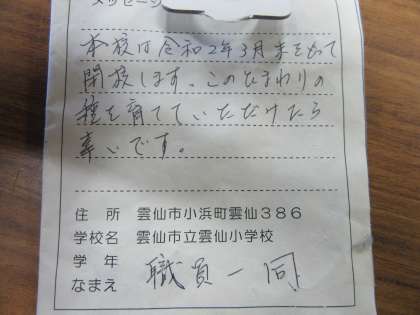 メッセージ
本校は令和2年3月末をもって
閉校します。このひまわりの
種を育てていただけたら
幸いです。
住　所　雲仙市小浜町雲仙３８６
学校名　雲仙市立雲仙小学校
学　年
なまえ　職員一同